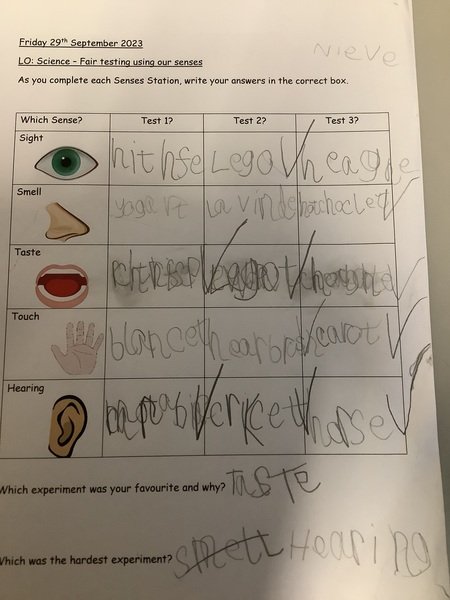 Friday 29th September 2023
Nieve
LO: Science – Fair testing using our senses
As you complete each Senses Station, write your answers in the correct box.
Which Sense? Test 1? Test 2? Test 3?
Sight
Lego
Smell
yogart lavinde hotchoclet
Taste
Touch
blancet hearbrsh carot
Hearing
cricett horse
Which experiment was your favourite and why? TASTE
Which was the hardest experiment? smell Hearing